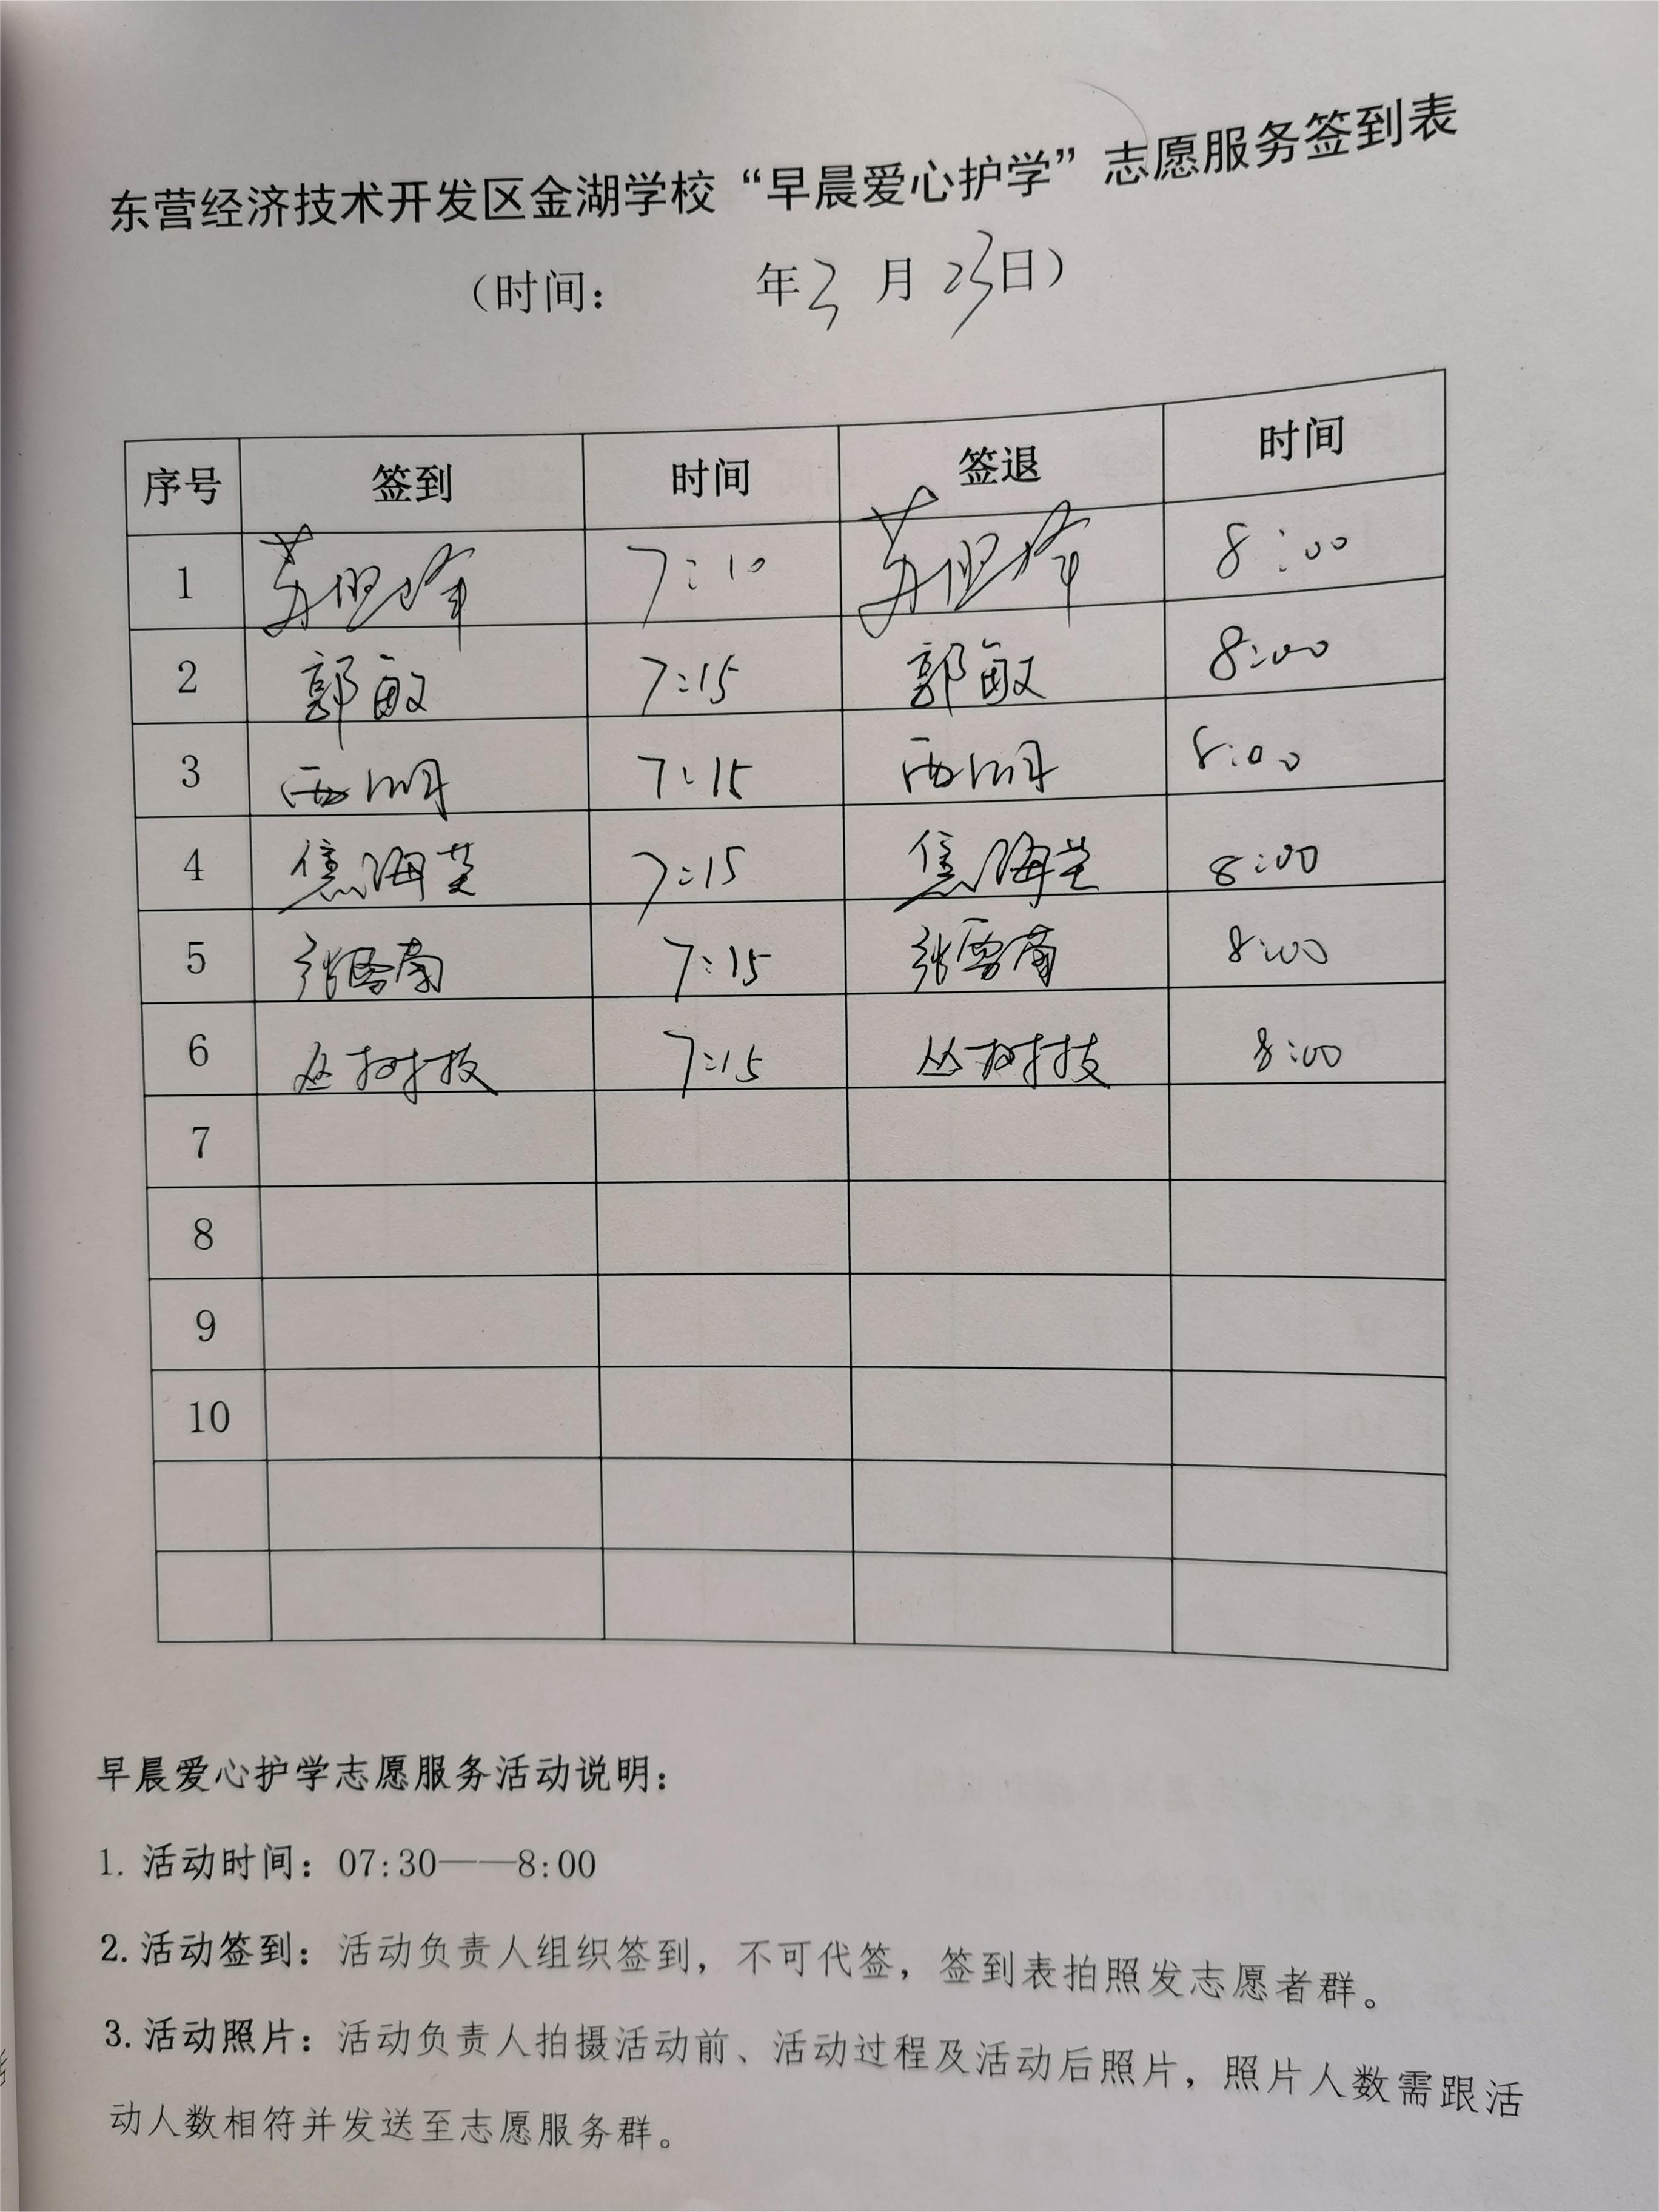 东营经济技术开发区金湖学校“早晨爱心护学”志愿服务签到表
（时间： 年3月23日）
序号 签到 时间 签退 时间
1 7:10 8:00
2 郭敏 7:15 郭敏 8:00
3 7:15 8:00
4 焦海芝 7:15 焦海芝 8:00
5 张雪菊 7:15 张雪菊 8:00
6 丛树枝 7:15 丛树枝 8:00
7
8
9
10
早晨爱心护学志愿服务活动说明：
1. 活动时间：07:30——8:00
2. 活动签到：活动负责人组织签到，不可代签，签到表拍照发志愿者群。
3. 活动照片：活动负责人拍摄活动前、活动过程及活动后照片，照片人数需跟活
动人数相符并发送至志愿服务群。